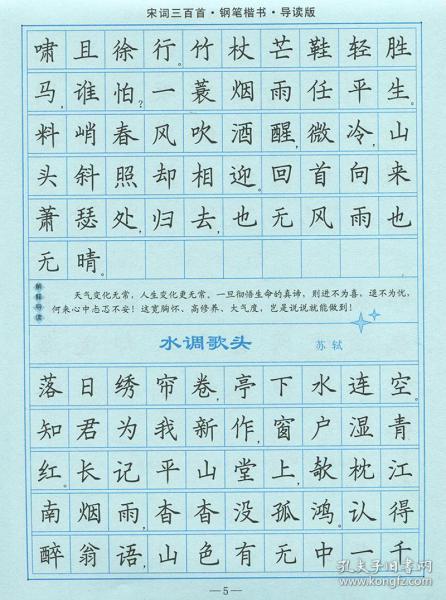 宋词三百首·钢笔楷书·导读版
啸且徐行。竹杖芒鞋轻胜
马,谁怕?一蓑烟雨任平生。
料峭春风吹酒醒,微冷,山
头斜照却相迎。回首向来
萧瑟处,归去,也无风雨也
无晴。
解释导读
天气变化无常,人生变化更无常。一旦彻悟生命的真谛,则进不为喜,退不为忧,
何来心中忐忑不安!这宽胸怀、高修养、大气度,岂是说说就能做到!
水调歌头 苏轼
落日绣帘卷,亭下水连空。
知君为我新作,窗户湿青
红。长记平山堂上,欹枕江
南烟雨,杳杳没孤鸿。认得
醉翁语,山色有无中。一千
—5—
孔夫子旧书网
www.kongfz.com